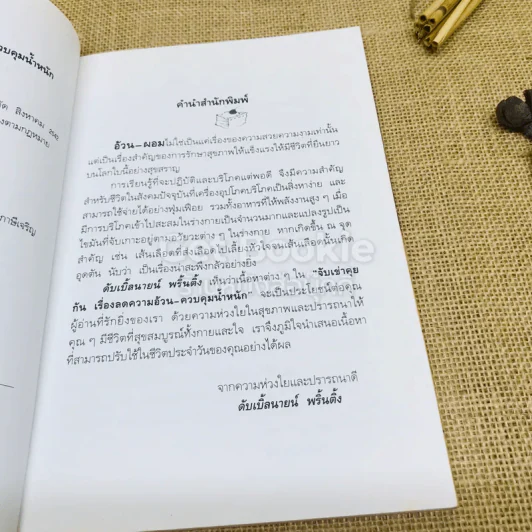 วบคุมน้ำหนัก
สิงหาคม
งตามกฎหมาย
ภาษีเจริญ
คำนำสำนักพิมพ์
อ้วน-ผอมไม่ใช่เป็นแค่เรื่องของความสวยความงามเท่านั้น
แต่เป็นเรื่องสำคัญของการรักษาสุขภาพให้แข็งแรงให้มีชีวิตที่ยืนยาว
บนโลกใบนี้อย่างสุขสราญ
การเรียนรู้ที่จะปฏิบัติและบริโภคแต่พอดี จึงมีความสำคัญ
สำหรับชีวิตในสังคมปัจจุบันที่เครื่องอุปโภคบริโภคเป็นสิ่งหาง่าย และ
สามารถใช้จ่ายได้อย่างฟุ่มเฟือย รวมทั้งอาหารที่ให้พลังงานสูง ๆ เมื่อ
มีการบริโภคเข้าไปสะสมในร่างกายเป็นจำนวนมากและแปลงรูปเป็น
ไขมันที่จับเกาะอยู่ตามอวัยวะต่าง ๆ ในร่างกาย หากเกิดขึ้น ณ จุด
สำคัญ เช่น เส้นเลือดที่ส่งเลือดไปเลี้ยงหัวใจจนเส้นเลือดนั้นเกิด
อุดตัน นับว่า เป็นเรื่องน่าสะพึงกลัวอย่างยิ่ง
ดับเบิ้ลนายน์ พริ้นติ้ง เห็นว่าเนื้อหาต่าง ๆ ใน "จับเข่าคุย
กัน เรื่องลดความอ้วน-ควบคุมน้ำหนัก" จะเป็นประโยชน์ต่อคุณ
ผู้อ่านที่รักยิ่งของเรา ด้วยความห่วงใยในสุขภาพและปรารถนาให้
คุณ ๆ มีชีวิตที่สุขสมบูรณ์ทั้งกายและใจ เราจึงภูมิใจนำเสนอเนื้อหา
ที่สามารถปรับใช้ในชีวิตประจำวันของคุณอย่างได้ผล
จากความห่วงใยและปรารถนาดี
ดับเบิ้ลนายน์ พริ้นติ้ง